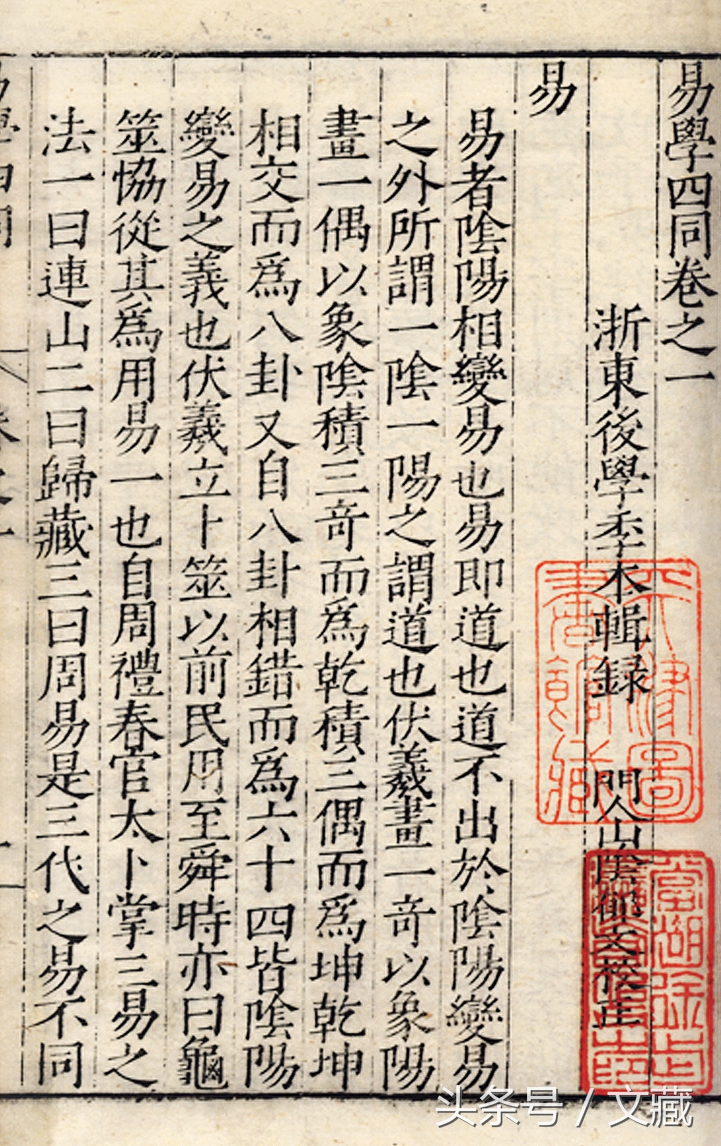 易學四同卷之一
浙東後學季本輯録 門人山陰郁文校正
易
易者陰陽相變易也易即道也道不出於陰陽變易
之外所謂一陰一陽之謂道也伏羲畫一奇以象陽
畫一偶以象陰積三奇而爲乾積三偶而爲坤乾坤
相交而爲八卦又自八卦相錯而爲六十四皆陰陽
變易之義也伏羲立卜筮以前民用至舜時亦曰龜
筮恊從其爲用易一也自周禮春官太卜掌三易之
法一曰連山二曰歸藏三曰周易是三代之易不同
易學四同 卷之一 一
天津圖書館藏
头条号 / 文藏